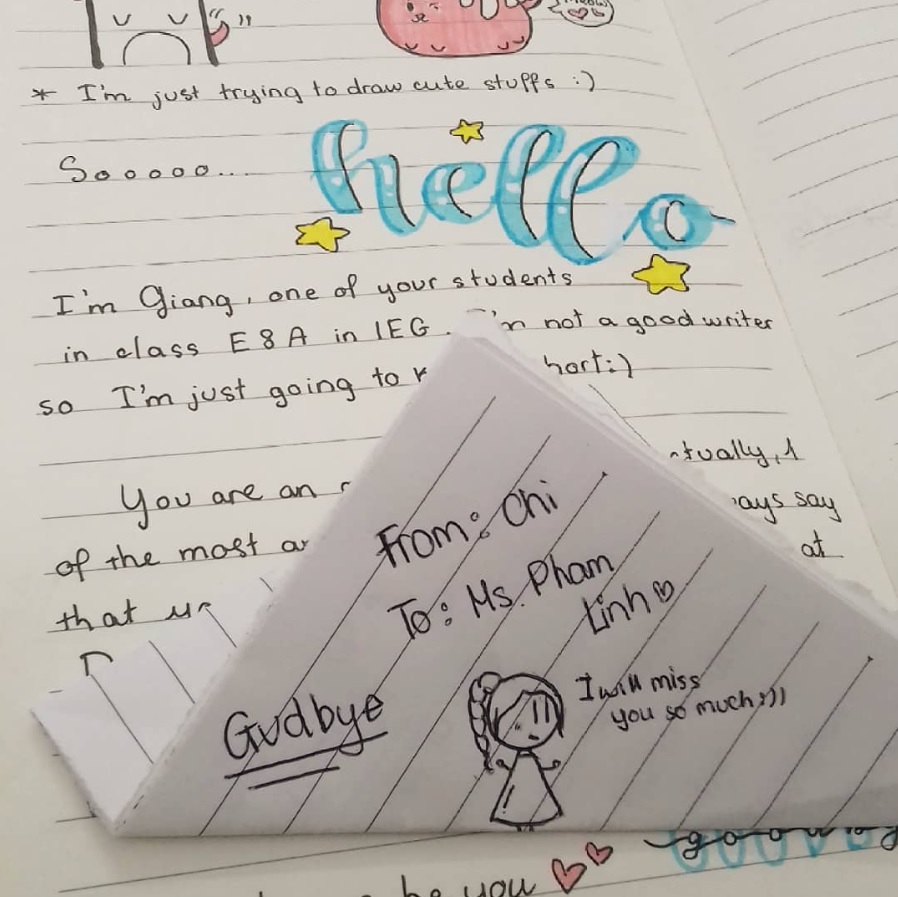 meow
* I'm just trying to draw cute stuffs :)
Sooooo... hello
I'm Giang, one of your students
in class E8A in IEG. I'm not a good writer
so I'm just going to hort:)
tually, I
You are an ays say
of the most at
that
From: Chi
To: Ms. Pham
Linh ♡
Gudbye
I will miss
you so much :)))
be you